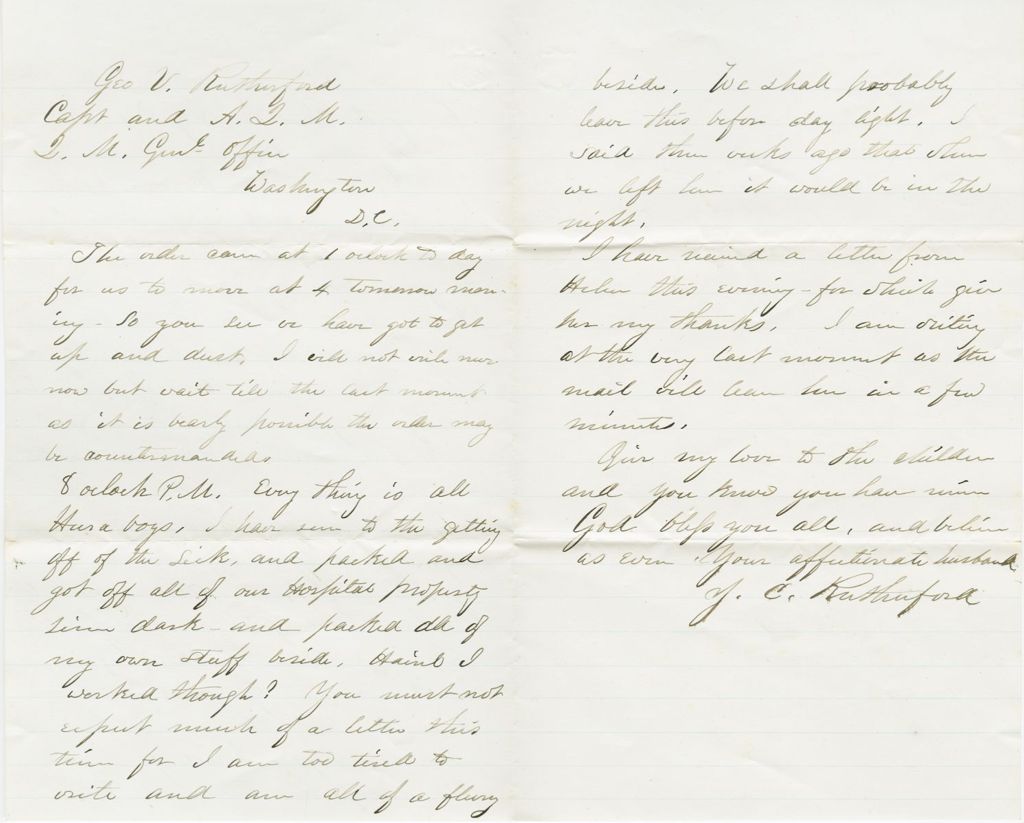 Geo V. Rutherford
Capt and A. Q. M.
Q. M. Genls office
Washington
D.C.
The order came at 1 oclock to day
for us to move at 4 tomorrow morn-
ing - So you see we have got to get
up and dust. I will not write more
now but wait till the last moment
as it is bearly possible the order may
be countermanded.
8 oclock P.M. Every thing is all
Hura boys. I have seen to the getting
off of the sick, and packed and
got off all of our Hospital property
since dark - and packed all of
my own stuff beside. Haint I
worked though? You must not
expect much of a letter this
time for I am too tired to
write and am all of a flurry
beside. We shall probably
leave this before day light. I
said three weeks ago that when
we left here it would be in the
night.
I have received a letter from
Helen this evening - for which give
her my thanks. I am writing
at the very last moment as the
mail will leave here in a few
minutes.
Give my love to the children
and you know you have mine
God bless you all, and believe me
as ever Your affectionate husband
J. C. Rutherford